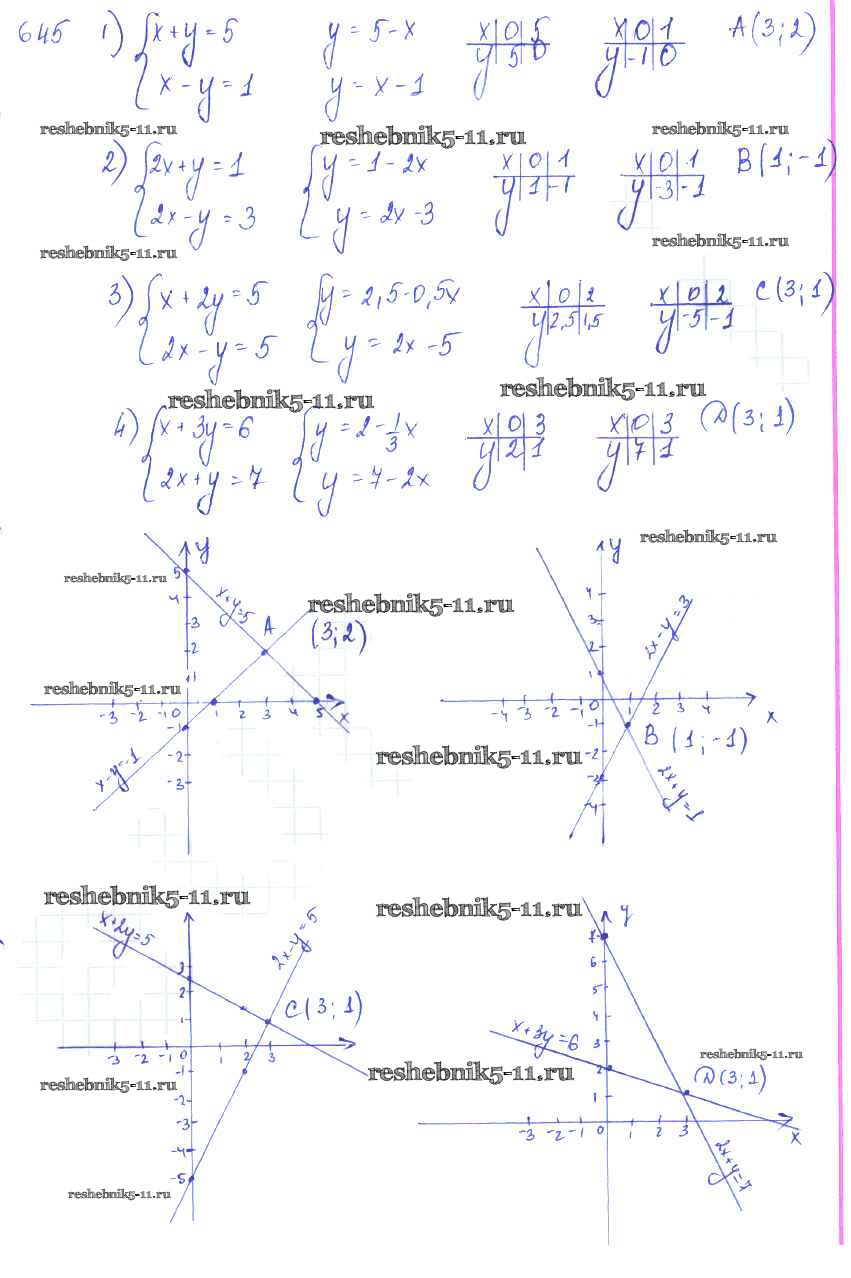 645 1) { x + y = 5 y = 5 - x x | 0 | 5 x | 0 | 1 A (3; 2)
x - y = 1 y = x - 1 y | 5 | 0 y | -1 | 0
reshebnik5-11.ru reshebnik5-11.ru reshebnik5-11.ru
2) { 2x + y = 1 { y = 1 - 2x x | 0 | 1 x | 0 | 1 B (1; -1)
2x - y = 3 y = 2x - 3 y | 1 | -1 y | -3 | -1
reshebnik5-11.ru reshebnik5-11.ru
3) { x + 2y = 5 { y = 2,5 - 0,5x x | 0 | 2 x | 0 | 2 C (3; 1)
2x - y = 5 y = 2x - 5 y | 2,5 | 1,5 y | -5 | -1
reshebnik5-11.ru reshebnik5-11.ru
4) { x + 3y = 6 { y = 2 - 1/3 x x | 0 | 3 x | 0 | 3 D (3; 1)
2x + y = 7 y = 7 - 2x y | 2 | 1 y | 7 | 1
reshebnik5-11.ru
y
5
4
3
2
1
-3 -2 -1 0 1 2 3 4 5 x
-1
-2
-3
x + y = 5
A
(3; 2)
x - y = 1
reshebnik5-11.ru
reshebnik5-11.ru
reshebnik5-11.ru
y
4
3
2
1
-4 -3 -2 -1 0 1 2 3 4 x
-1
-2
-3
-4
2x - y = 3
B (1; -1)
2x + y = 1
reshebnik5-11.ru
reshebnik5-11.ru
reshebnik5-11.ru
x + 2y = 5
2x - y = 5
3
2
1
C (3; 1)
-3 -2 -1 0 1 2 3
-1
-2
-3
-4
-5
reshebnik5-11.ru
reshebnik5-11.ru
reshebnik5-11.ru
y
7
6
5
4
3
2
1
x + 3y = 6
reshebnik5-11.ru
D (3; 1)
-3 -2 -1 0 1 2 3 x
2x + y = 7